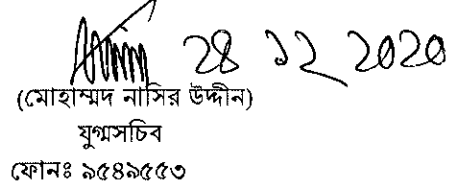 ২৪ ১২ ২০২০
(মোহাম্মদ নাসির উদ্দীন)
যুগ্মসচিব
ফোনঃ ৯৫৪৯৫৫৩